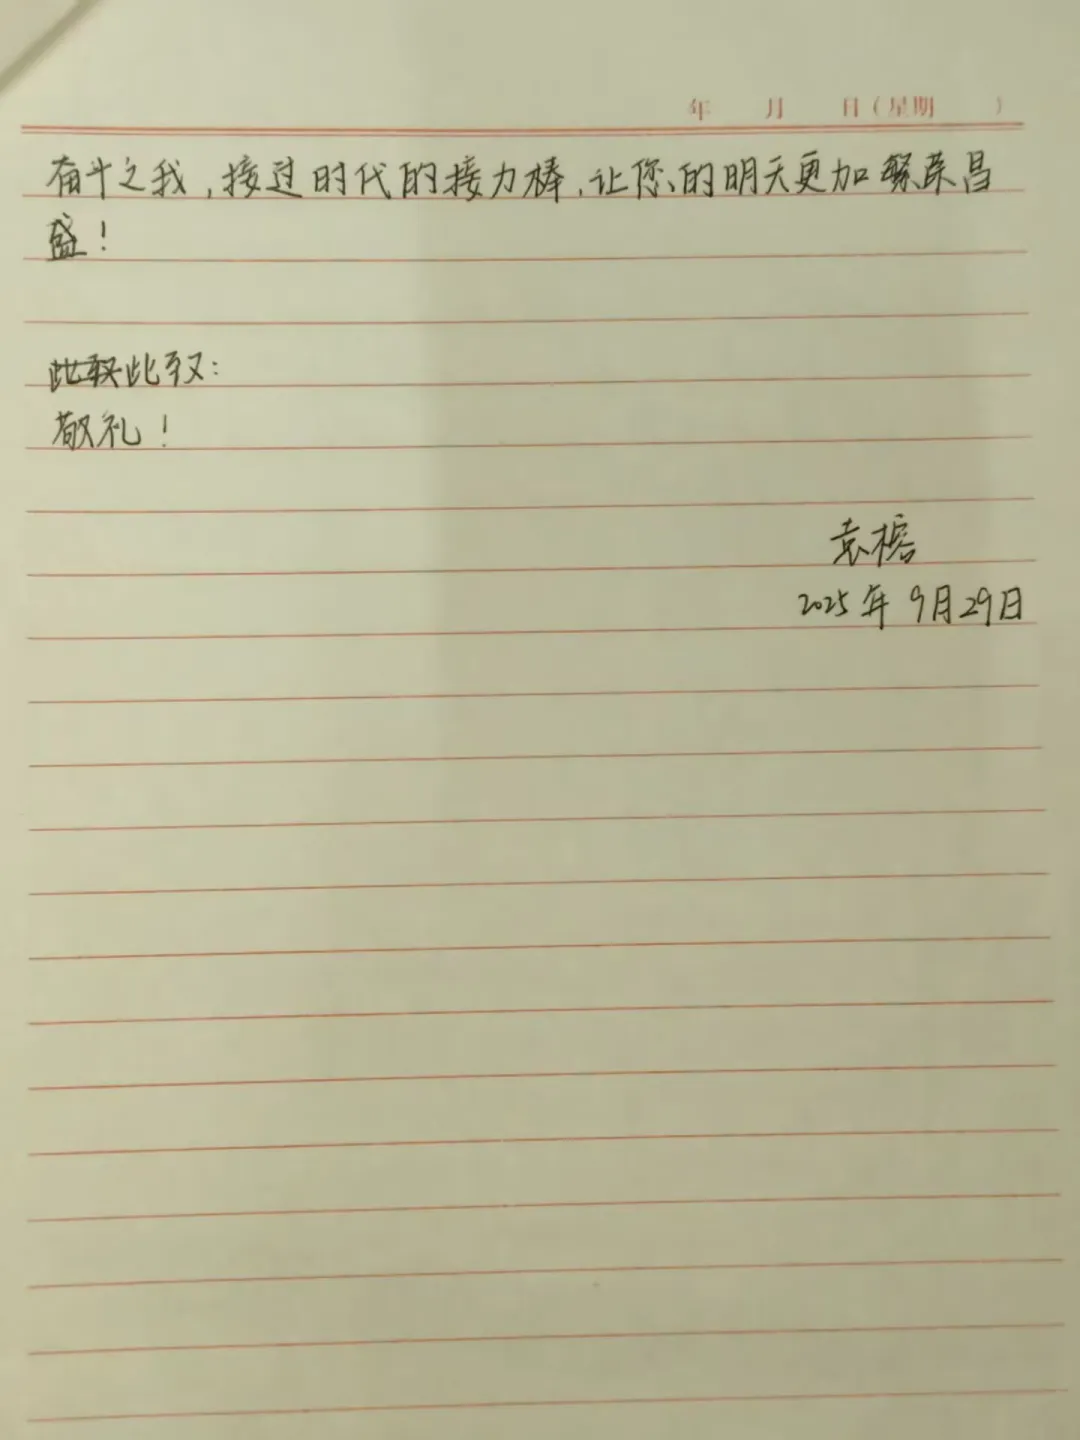 年 月 日（星期 ）
奋斗之我，接过时代的接力棒，让您的明天更加繁荣昌
盛！
此致：
敬礼！
袁榕
2025年 9月29日